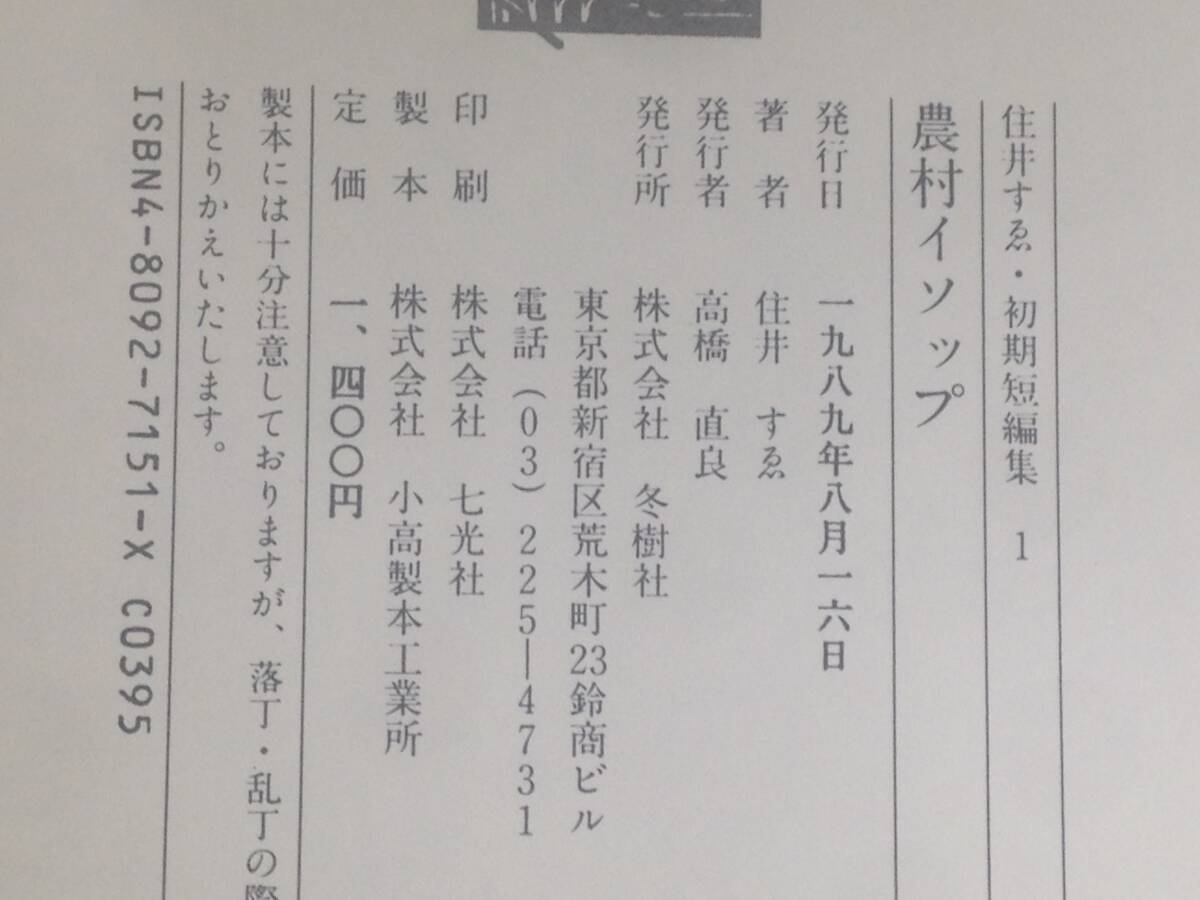 住井すゑ・初期短編集　1
農村イソップ
発行日　一九八九年八月一六日
著　者　住井　すゑ
発行者　高橋　直良
発行所　株式会社　冬樹社
東京都新宿区荒木町23鈴商ビル
電話（03）225―4731
印　刷　株式会社　七光社
製　本　株式会社　小高製本工業所
定　価　一、四〇〇円
製本には十分注意しておりますが、落丁・乱丁の際
おとりかえいたします。
ISBN4-8092-7151-X C0395